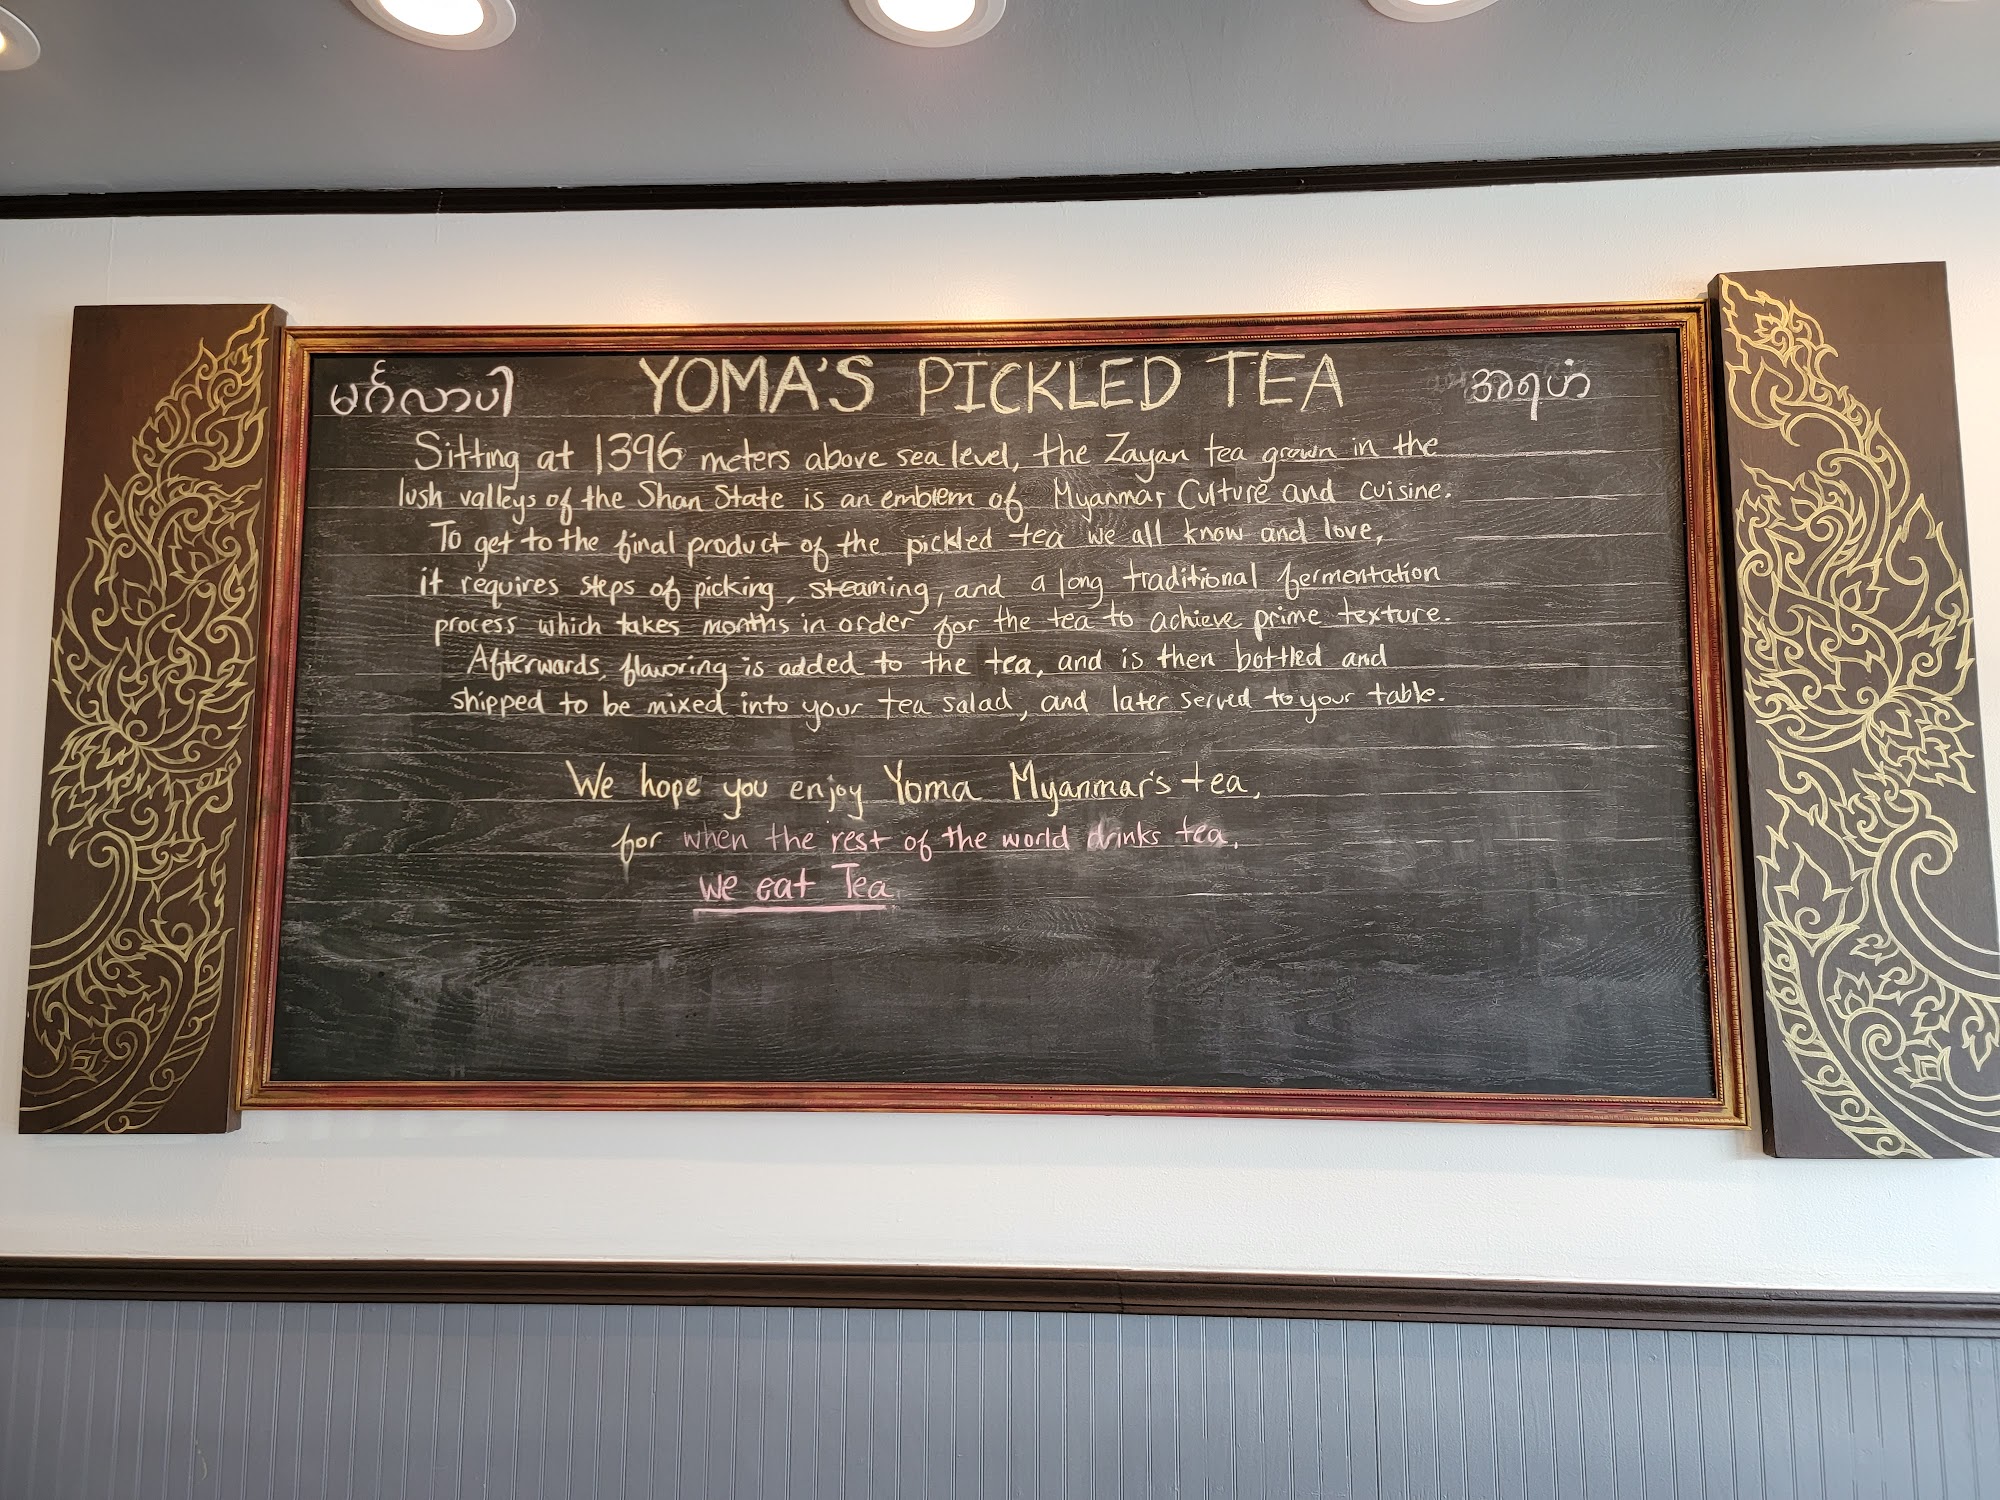 မင်္ဂလာပါ YOMA'S PICKLED TEA
Sitting at 1396 meters above sea level, the Zayan tea grown in the
lush valleys of the Shan State is an emblem of Myanmar Culture and cuisine.
To get to the final product of the pickled tea we all know and love,
it requires steps of picking, steaming, and a long traditional fermentation
process which takes months in order for the tea to achieve prime texture.
Afterwards, flavoring is added to the tea, and is then bottled and
shipped to be mixed into your tea salad, and later served to your table.
We hope you enjoy Yoma Myanmar's tea,
for when the rest of the world drinks tea,
we eat Tea